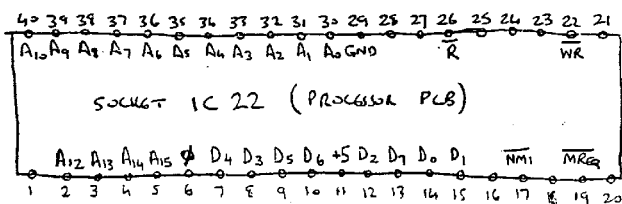 40 39 38 37 36 35 34 33 32 31 30 29 28 27 26 25 24 23 22 21
A₁₀ A₉ A₈ A₇ A₆ A₅ A₄ A₃ A₂ A₁ A₀ GND R̅ W̅R̅
SOCKET IC 22 (PROCESSOR PCB)
A₁₂ A₁₃ A₁₄ A₁₅ ϕ D₄ D₃ D₅ D₆ +5 D₂ D₇ D₀ D₁ N̅M̅I̅ M̅R̅E̅Q̅
1 2 3 4 5 6 7 8 9 10 11 12 13 14 15 16 17 18 19 20